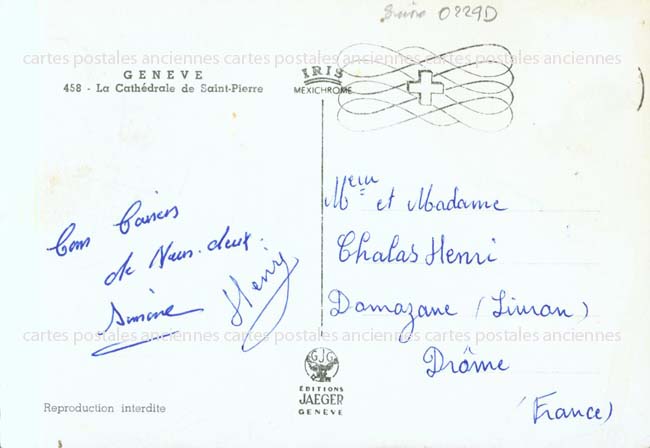 Suisse 0229D
cartes postales anciennes cartes postales anciennes cartes postales anciennes
GENEVE
458 - La Cathédrale de Saint-Pierre
IRIS
MEXICHROME
Bons Baisers
de Nous-deux.
Simone Henri
Meur et Madame
Chalas Henri
Damazane (Livron)
Drôme
(France)
cartes postales anciennes cartes postales anciennes cartes postales anciennes
GJG
EDITIONS
JAEGER
GENÈVE
Reproduction interdite